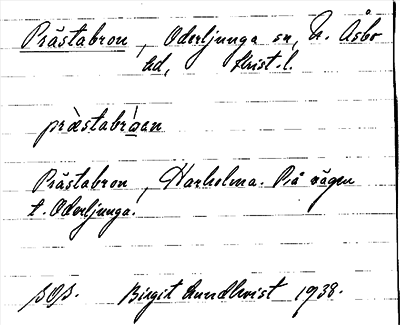 Prästabron, Oderljunga sn, N. Åsbo
hd, Krist. l.
præ̀stabrǻan
Prästabron, Harholma. På vägen
t. Oderljunga.
Birgit Lundkvist 1938.